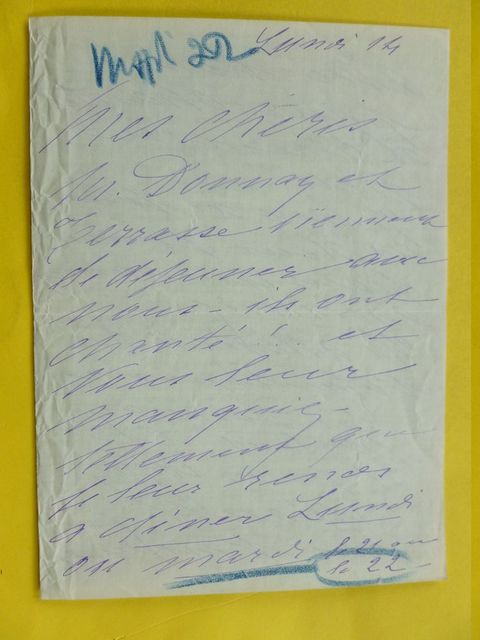 Mardi 22
Lundi 14
Mes chéris
M. Donnay et
Terrasse viennent
de déjeuner avec
nous - ils ont
chanté !! et
vous leur
manquiez
tellement que
je leur rends
a diner Lundi
ou mardi le 21 ou
le 22